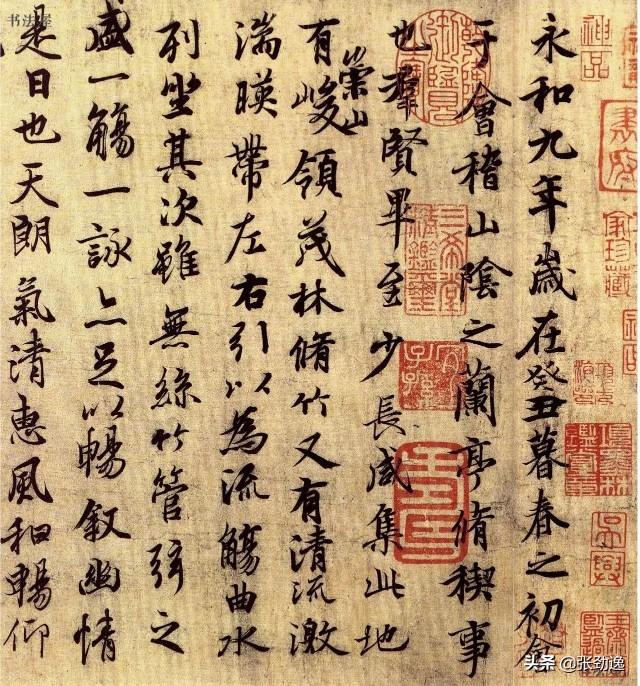 永和九年歲在癸丑暮春之初會
于會稽山陰之蘭亭脩稧事
也羣賢畢至少長咸集此地
有崇山峻領茂林脩竹又有清流激
湍暎帶左右引以為流觴曲水
列坐其次雖無絲竹管弦之
盛一觴一詠亦足以暢敘幽情
是日也天朗氣清惠風和暢仰
神品
珍藏
吳興
头条 @张劲逸